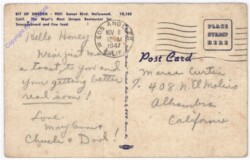 BIT OF SWEDEN - 9051 Sunset Blvd., Hollywood,
Calif. The West's Most Unique Restaurant for
Smorgasbord and fine food.
Hello Honey
We're just
a toast to you and
your getting better
real soon!
Love
Mary
Chuck & Dad!
NOV
1947
CALIF
PLACE
STAMP
HERE
Post Card
Curtis
408 N. El Molino
Alhambra
California